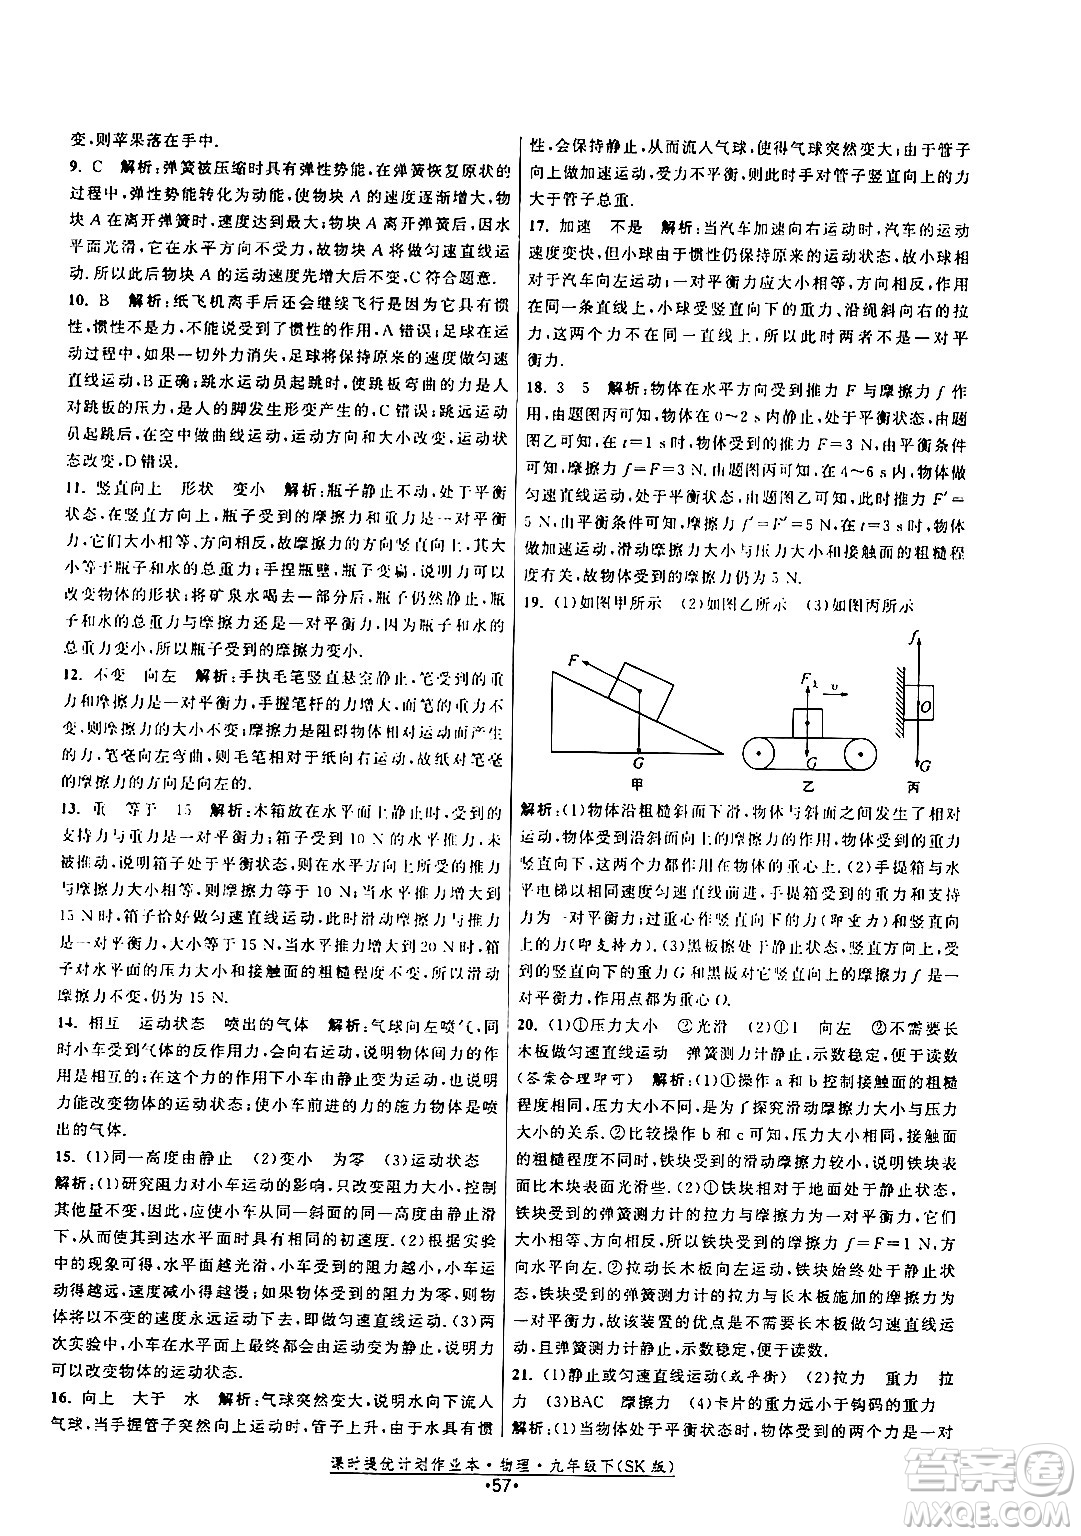 变,则苹果落在手中.
9. C 解析:弹簧被压缩时具有弹性势能,在弹簧恢复原状的
过程中,弹性势能转化为动能,使物块 A 的速度逐渐增大,物
块 A 在离开弹簧时,速度达到最大;物块 A 离开弹簧后,因水
平面光滑,它在水平方向不受力,故物块 A 将做匀速直线运
动. 所以此后物块 A 的运动速度先增大后不变,C 符合题意.
10. B 解析:纸飞机离手后还会继续飞行是因为它具有惯
性,惯性不是力,不能说受到了惯性的作用,A 错误;足球在
运动过程中,如果一切外力消失,足球将保持原来的速度做匀速
直线运动,B 正确;跳水运动员起跳时,使跳板弯曲的力是人
对跳板的压力,是人的脚发生形变产生的,C 错误;跳远运动
员起跳后,在空中做曲线运动,运动方向和大小改变,运动状
态改变,D 错误.
11. 竖直向上 形状 变小 解析:瓶子静止不动,处于平衡
状态,在竖直方向上,瓶子受到的摩擦力和重力是一对平衡
力,它们大小相等、方向相反,故摩擦力的方向竖直向上,其大
小等于瓶子和水的总重力;手捏瓶壁,瓶子变扁,说明力可以改
变物体的形状;当将矿泉水喝去一部分后,瓶子仍静止,瓶
子和水的总重力与摩擦力还是一对平衡力,因为瓶子和水的
总重力变小,所以瓶子受到的摩擦力变小.
12. 不变 向左 解析:手执毛笔竖直悬空静止,笔受到的重
力和摩擦力是一对平衡力,手握笔杆的力增大,而笔的重力不
变,则摩擦力的大小不变;摩擦力是阻碍物体相对运动而产生
的力,笔毫向左弯曲,则毛笔相对于纸向右运动,故毛笔受到
的摩擦力的方向是向左的.
13. 重 等于 15 解析:木箱放在水平面上静止,受到的
支持力与重力是一对平衡力;箱子受到 10 N 的水平推力,未
被推动,说明箱子处于平衡状态,则在水平方向上所受的推力
与摩擦力大小相等,则摩擦力等于 10 N;当水平推力增大到
15 N,箱子恰好做匀速直线运动,此时滑动摩擦力与推力大小
相等,为 15 N;当水平推力增大到 20 N 时,箱
子对水平面的压力大小和接触面的粗糙程度不变,所以滑动
摩擦力不变,仍为 15 N.
14. 相互 运动状态 喷出的气体 解析:气球向左喷气,同
时小车受到气体的反作用力,会向右运动,说明物体间力的作
用是相互的;在这个力的作用下小车由静止变为运动,说明
力能改变物体的运动状态;使小车前进的力的施力物体是喷
出的气体.
15. (1)同一高度由静止 (2)变小 为零 (3)运动状态
解析:(1)研究阻力对小车运动的影响,只改变阻力大小,控制
其他量不变,应使小车在同一斜面的同一高度由静止滑
下,以使其到达水平面时具有相同的初速度. (2)根据实验
中的现象可得,水平面越光滑,小车受到的阻力越小,小车运
动得越远,速度减小得越慢;如果物体受到的阻力为零,运动的
物体将在水平面上一直运动下去,即做匀速直线运动. (3)两
次实验中,小车在水平面上最终都会由运动变为静止,说明力
可以改变物体的运动状态.
16. 向上 大于 水 解析:气球突然变大,说明水向下流入
气球,当手握管子突然向上运动时,管子上升,由于水具有惯
性,会保持静止,从而流入气球,导致气球突然变大;由于管子
向上做加速运动,受力不平衡,则此时手对管子竖直向上的力
大于管子总重.
17. 加速 不是 解析:当汽车加速向右运动时,汽车的运动
速度变快,但小球由于惯性仍保持原来的运动状态,故小球相
对于汽车向左运动;一对平衡力应大小相等,方向相反,作用
在同一条直线上,小球受竖直向下的重力、沿绳斜向右的拉
力,这两个力不在同一直线上,所以此时两个力不是一对平
衡力.
18. 3 5 解析:物体在水平方向受到推力 F 与摩擦力 f 作
用,由题图丙可知,物体在 0~2 s 内静止,处于平衡状态,由题
图乙可知,在 t=1 s 时,物体受到的推力 F=3 N,由平衡条件
可知,摩擦力 f=F=3 N;由题图丙可知,在 4~6 s 内,物体做
匀速直线运动,处于平衡状态,由题图乙可知,此时推力 F′=
5 N,由平衡条件可知,摩擦力 f′=F′=5 N;在 t=3 s 时,物体
做加速运动,滑动摩擦力大小与压力大小和接触面的粗糙程
度有关,故物体受到的摩擦力仍为 5 N.
19. (1)如图甲所示 (2)如图乙所示 (3)如图丙所示
F
G
甲
F支
v
G
乙
f
O
G
丙
解析:(1)物体沿粗糙斜面下滑,物体与斜面之间发生了相对
运动,物体受到沿斜面向上的摩擦力的作用,物体受到的重力
竖直向下,这两个力都作用在物体的重心上. (2)手提箱与水
平电梯以相同速度匀速直线前进,手提箱受到的重力和支持
力为一对平衡力;过重心作竖直向下的力(即重力)和竖直向
上的力(即支持力). (3)黑板擦处于静止状态,竖直方向上受
到的竖直向下的重力 G 和黑板对它竖直向上的摩擦力 f 是一
对平衡力,作用点都画在重心 O.
20. (1)①压力大小 ②光滑 (2)①1 向左 ②不需要长
木板做匀速直线运动 弹簧测力计静止,示数稳定,便于读数
(答案合理即可) 解析:(1)①操作 a 和 b 控制接触面的粗糙
程度相同,压力大小不同,是为了探究滑动摩擦力大小与压力
大小的关系. ②比较操作 b 和 c 可知,压力大小相同,接触面
的粗糙程度不同,铁块受到的滑动摩擦力较小,说明铁块表
面比木块表面光滑些. (2)①铁块相对于地面处于静止状态,
铁块受到的弹簧测力计的拉力与摩擦力为一对平衡力,它们
大小相等,方向相反,所以铁块受到的摩擦力 f=F=1 N,方
向向左. ②因为拉动长木板向左运动,铁块处于静止状态,则
铁块受到弹簧测力计的拉力与长木板施加给它的摩擦力是一
对平衡力,故该装置的优点是不需要长木板做匀速直线运
动,且弹簧测力计静止、示数稳定,便于读数.
21. (1)静止或匀速直线运动(或平衡) (2)拉力 重力 拉
力 (3)BAC 摩擦力 (4)卡片的重力远小于钩码的重力
解析:(1)当物体处于平衡状态时,物体受到的力是一对平衡
课时提优计划作业本·物理·九年级下(SK版)
·57·
答案圈
MXQE.COM